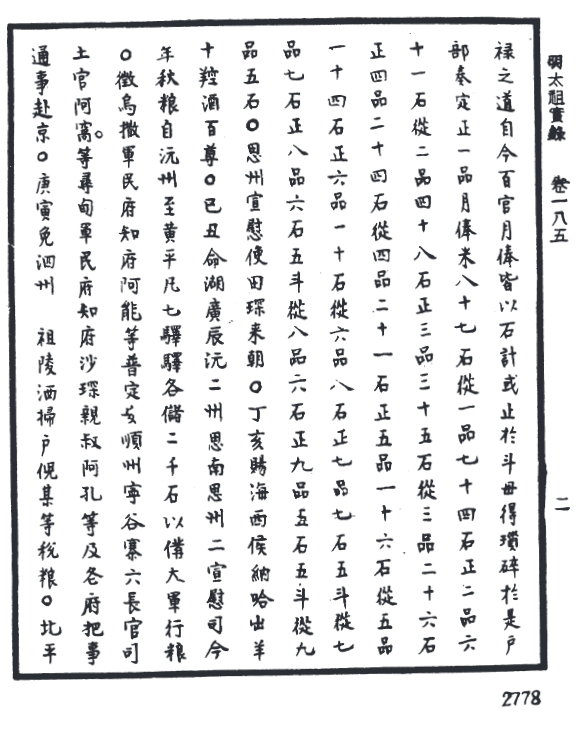 明太祖實錄 卷一八五 二
禄之道自今百官月俸皆以石計或止於斗毋得瑣碎於是户
部奏定正一品月俸米八十七石從一品七十四石正二品六
十一石從二品四十八石正三品三十五石從三品二十六石
正四品二十四石從四品二十一石正五品一十六石從五品
一十四石正六品一十石從六品八石正七品七石五斗從七
品七石正八品六石五斗從八品六石正九品五石五斗從九
品五石○思州宣慰使田琛来朝○丁亥賜海西侯納哈出羊
十羫酒百尊○己丑命湖廣辰沅二州思南思州二宣慰司今
年秋粮自沅州至黄平凡七驛驛各儲二千石以備大軍行粮
○徵烏撒軍民府知府阿能等普定安順州寧谷寨六長官司
土官阿窩等尋甸軍民府知府沙琛親叔阿孔等及各府把事
通事赴京○庚寅免泗州 祖陵洒掃户倪某等税粮○北平
2778